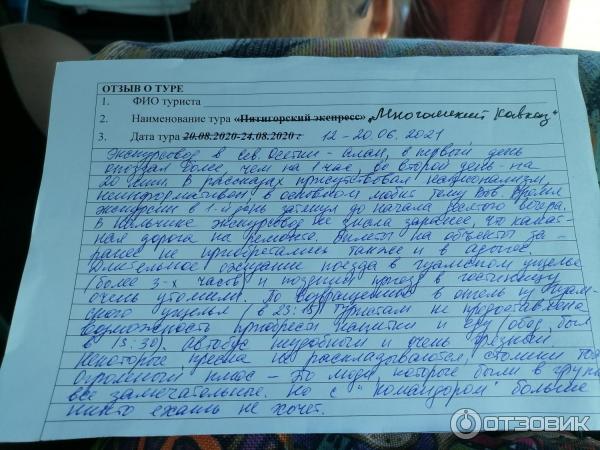 ОТЗЫВ О ТУРЕ
1. ФИО туриста
2. Наименование тура «Пятигорский экспресс» „Многоликий Кавказ"
3. Дата тура 20.08.2020-24.08.2020 г. 12-20.06.2021
Экскурсовод в Сев. Осетии - Алан, в первый день
опоздал более, чем на 1 час, во второй день - на
20 мин. В рассказах присутствовал национализм,
неинформативен, в основном любит тему Вов. Время
экскурсии в 1-й день затянул до начала восьмого вечера.
В Нальчике экскурсовод не знала заранее, что канат-
ная дорога на ремонте. Билеты на объекты за-
ранее не приобретались также и в Адыгее.
Длительное ожидание поезда в гуамском ущелье
(более 3-х часов) и поздний приезд в гостиницу
очень утомили. По возвращению в отель из Гуам-
ского ущелья (в 23:15) туристам не предоставлена
возможность приобрести напитки и еду (обед был
в 13:30). Автобус неудобный и очень грязный.
Некоторые кресла не раскладываются, столики тоже
Огромный плюс - это люди, которые были в группе
все замечательные. Но с "Командором" больше
никто ехать не хочет.
ОТЗОВИК